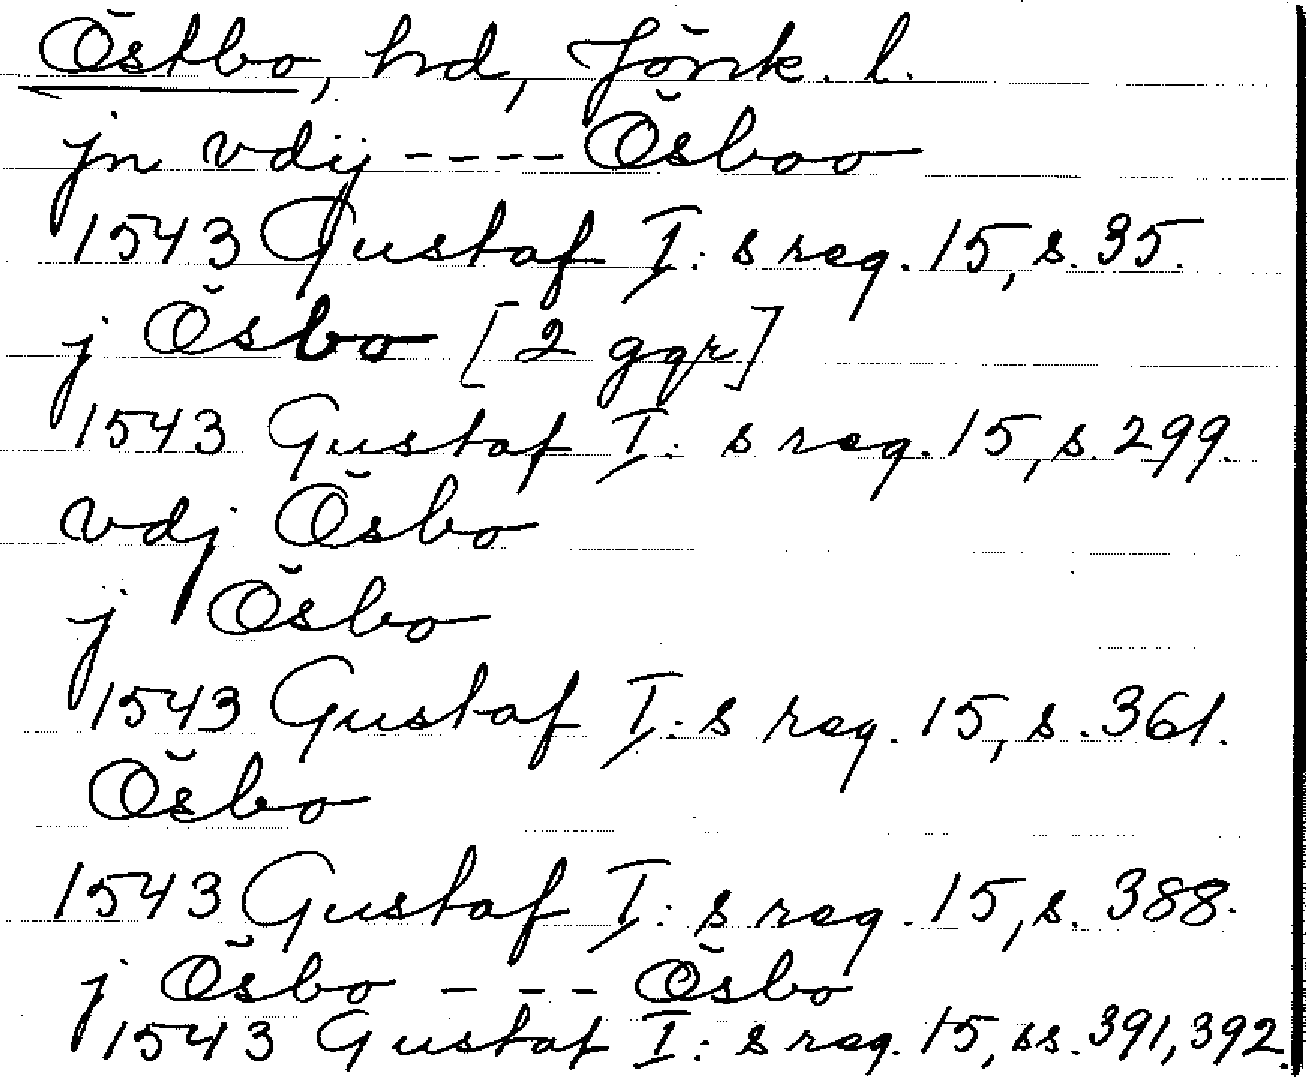 Östbo, hd, Jönk. l.
jn vdij ---- Ösboo
1543 Gustaf I: s reg. 15, s. 35.
j Ösbo [2 ggr]
1543 Gustaf I: s reg. 15, s. 299.
vdj Ösbo
j Ösbo
1543 Gustaf I: s reg. 15, s. 361.
Ösbo
1543 Gustaf I: s reg. 15, s. 388.
j Ösbo - - - Ösbo
1543 Gustaf I: s reg. 15, ss. 391, 392.